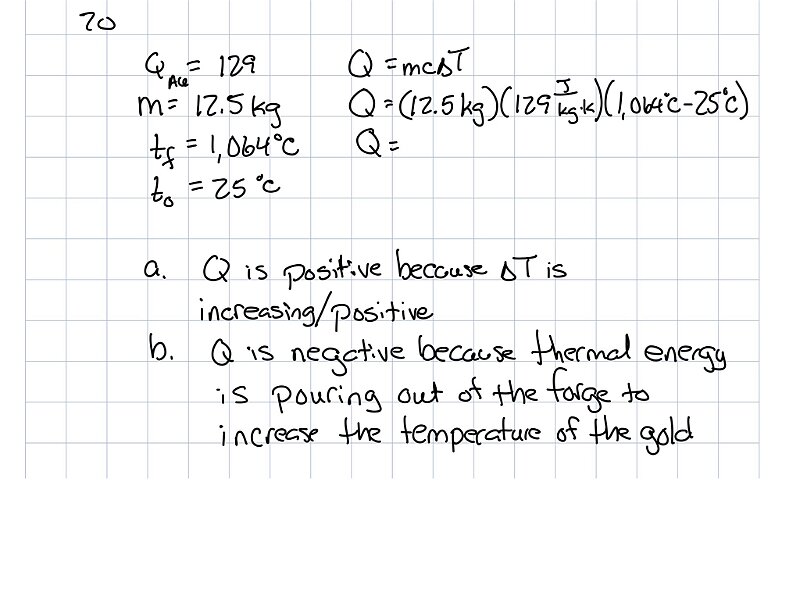 20
Q_Au = 129
Q = mcΔT
m = 12.5 kg
Q = (12.5 kg)(129 J/kg·k)(1,064°C - 25°C)
t_f = 1,064°C
Q =
t_o = 25 °C
a. Q is positive because ΔT is
increasing/positive
b. Q is negative because thermal energy
is pouring out of the forge to
increase the temperature of the gold